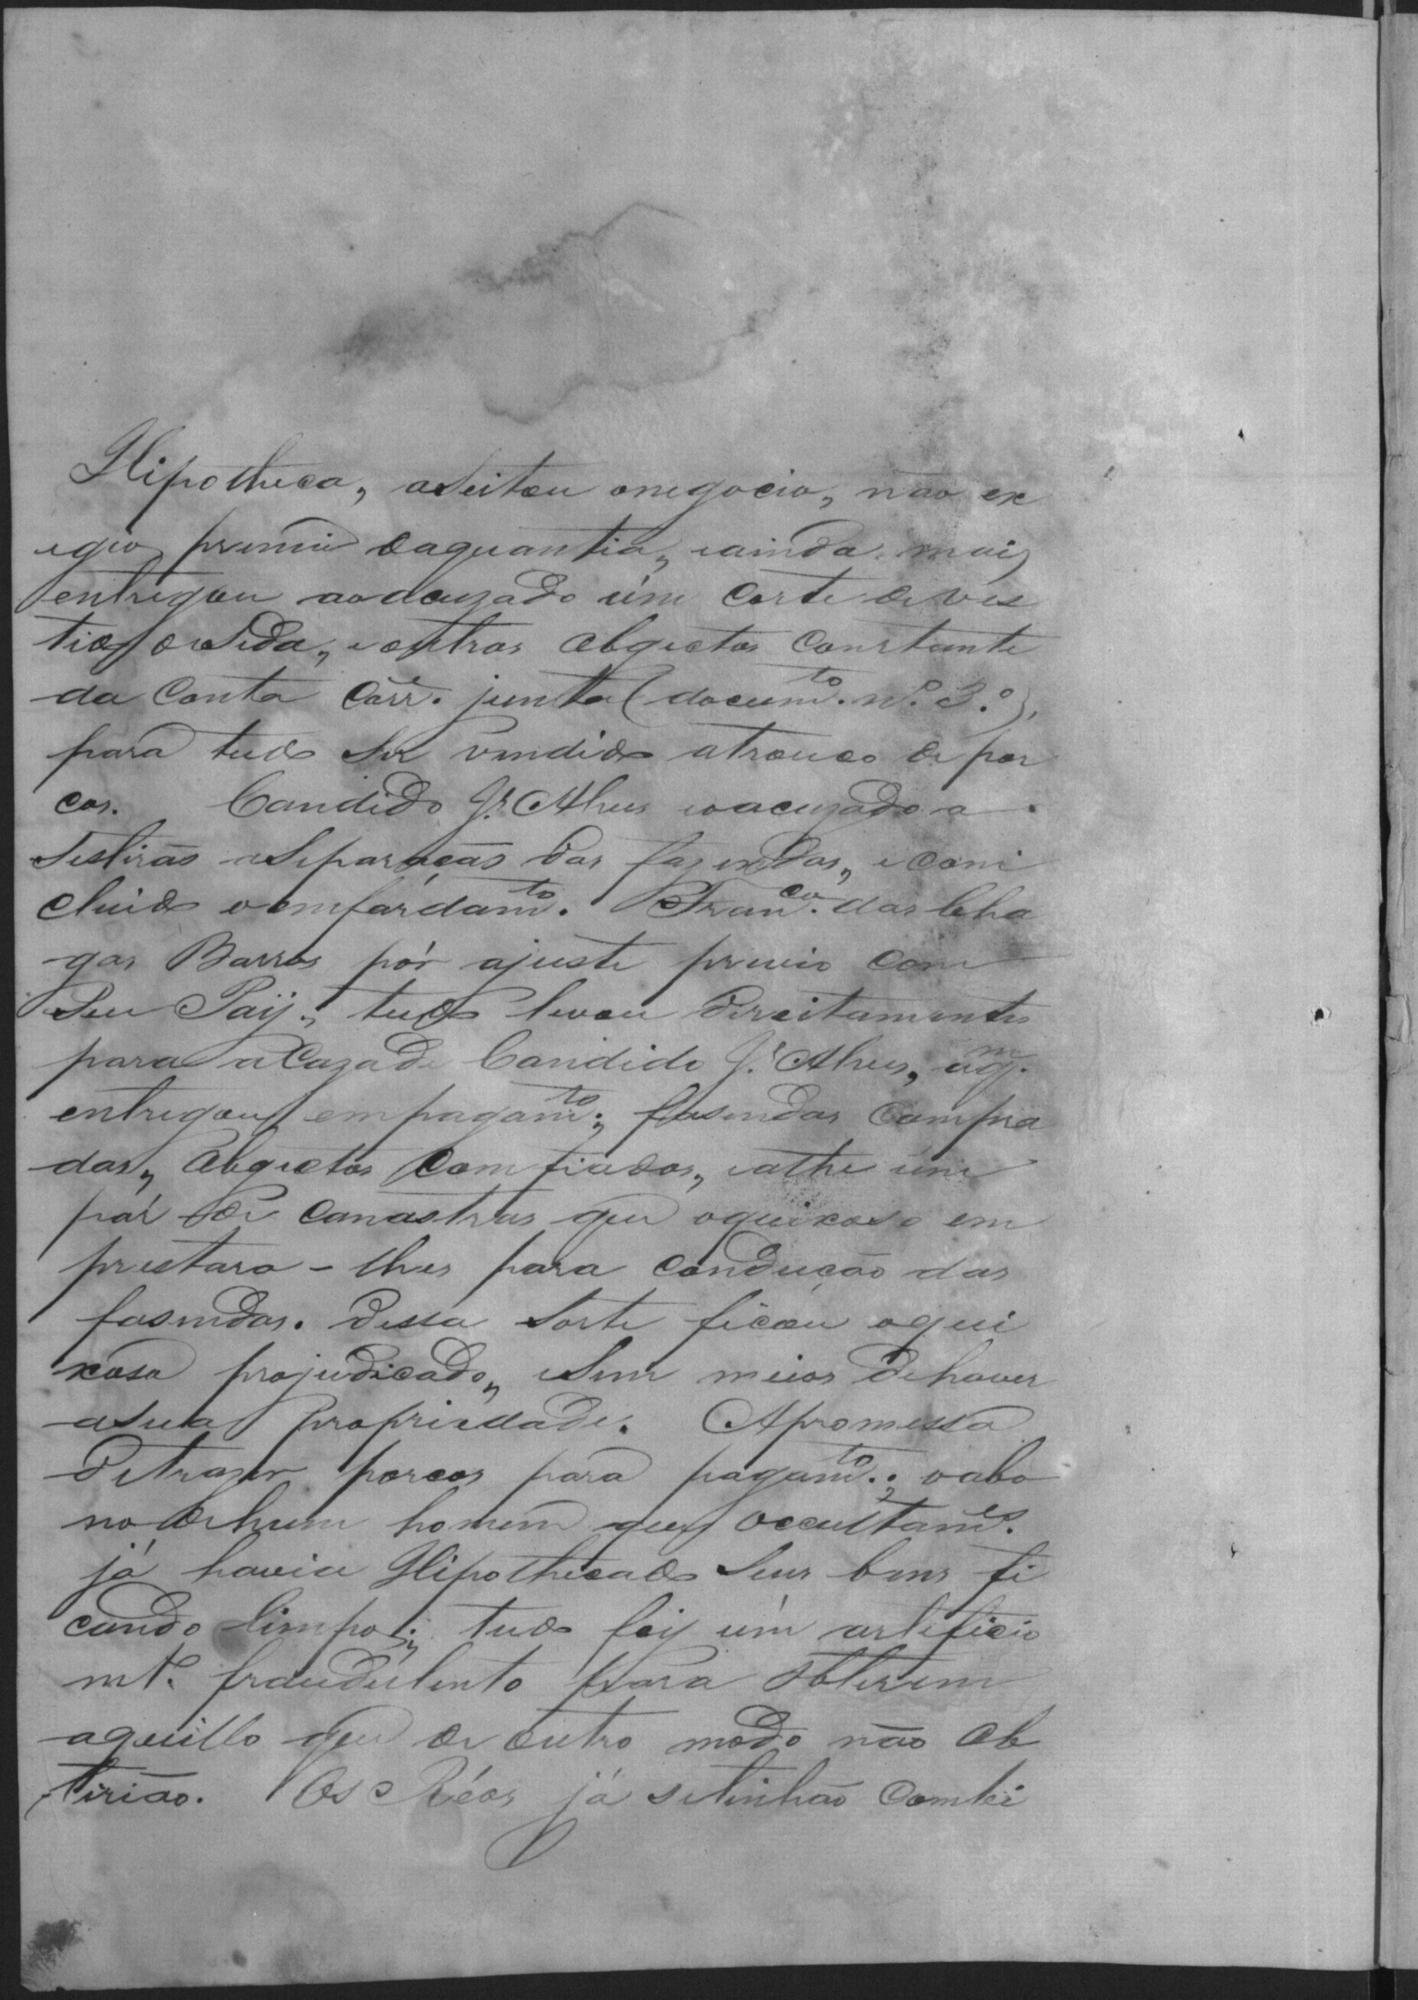 Hipotheca, aseitou onegocio, não ex
egio premio daquantia, eainda mais
entregou aoacuzado úm Corte de ves
tido deseda, eoutros Obgectos Constante
da Conta Corr.e junta (docum.to n.º 3.º),
para tudo ser vendido atrouco de por
cos. Candido J.é Alves eoacuzado a
sestirão aseparação das fazendas, e con
cluido oemfardam.to. Fran.co das Cha
gas Barros pór ajuste previo com
seu Paiÿ, tudo levou direitamente
para aCaza de Candido J.é Alves, aq.m
entregou em pagam.to; fasendas Compra
das, Obgectos Comfiados, eathe úm
pár de Canastras que oqueixoso em
prestara-lhes para condução das
fasendas. Dessa sorte ficou oquei
xoso prejudicado, esem meios dehaver
asua propriedade. Apromessa
detraser porcos para pagam.to; oabo
no dehum homem que occultam.e
já havia Hipothecado seus bens fi
cando limpo; tudo foy úm artificio
mt.º fraudulento para obterem
aquillo que de outro modo não ob
terião. Os Réos já setinhão Combi